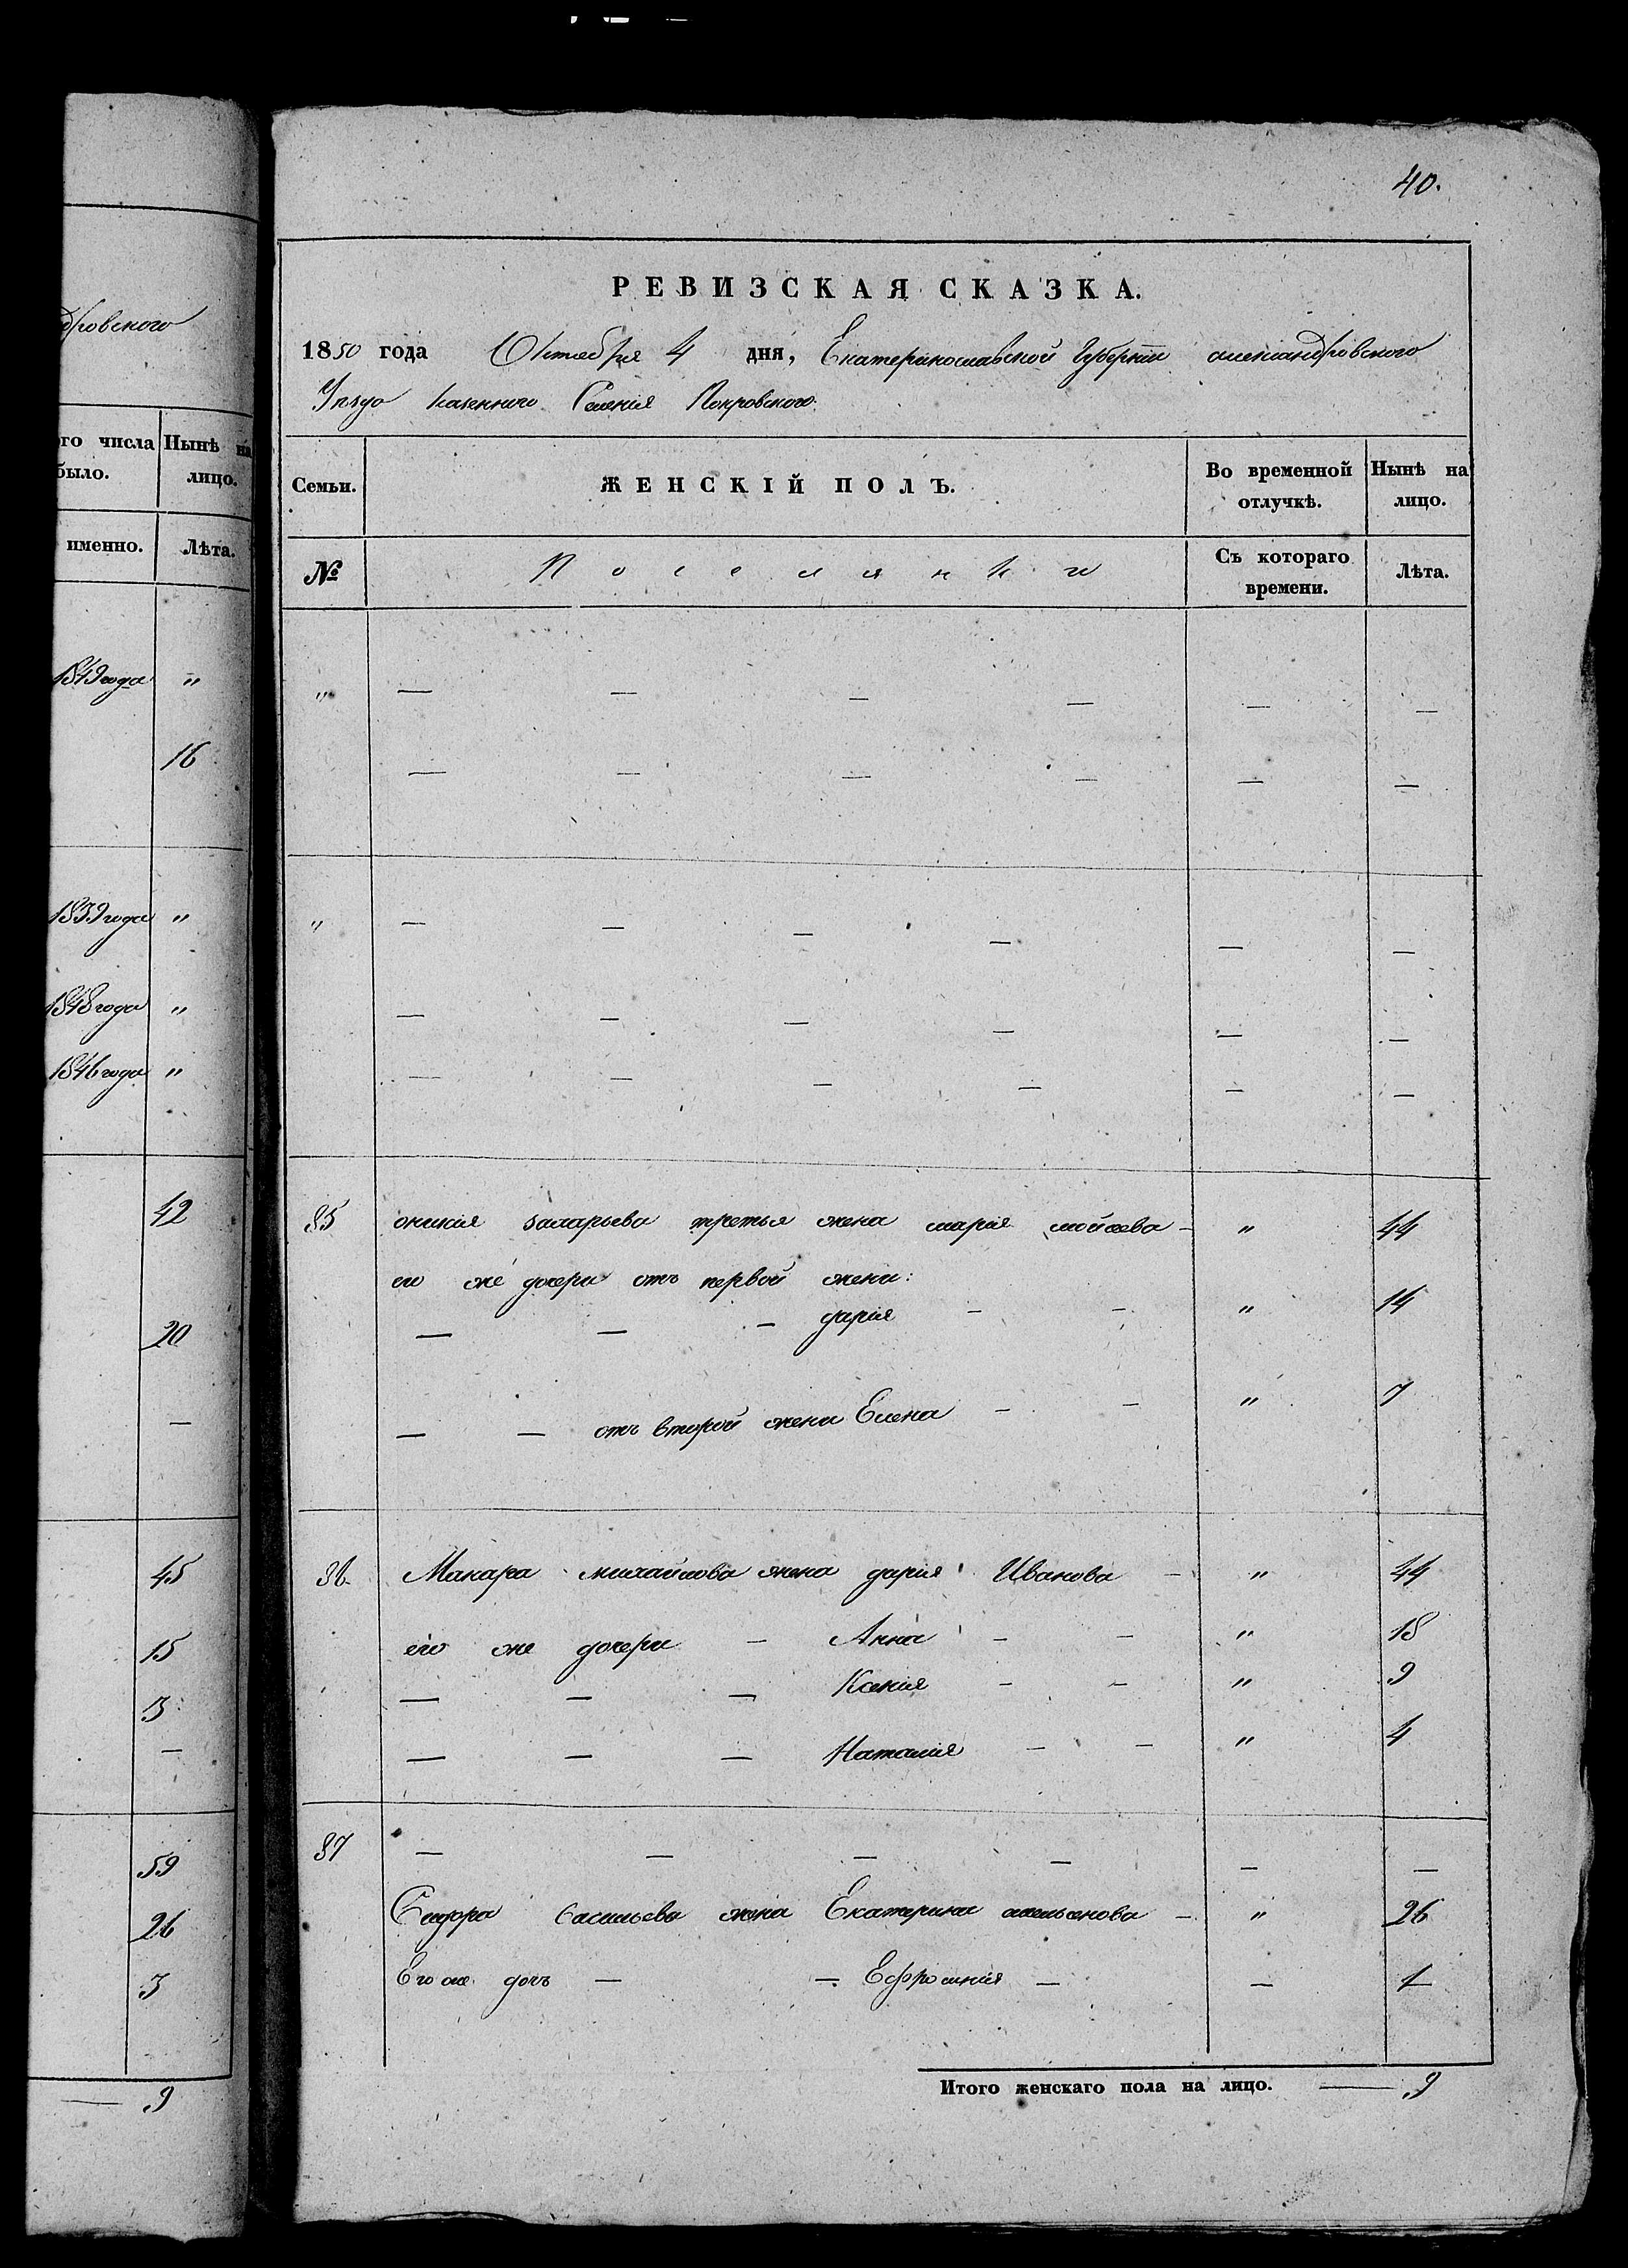 40.
дровского
РЕВИЗСКАЯ СКАЗКА.
1850 года Октября 4 дня, Екатеринославской Губернии александровского
Уезда казенного Селения Покровского.
ого числа
было.
Нынѣ на
лицо.
именно.
Лѣта.
Семьи.
ЖЕНСКІЙ ПОЛЪ.
Во временной
отлучкѣ.
Нынѣ на
лицо.
№
Поселянки
Съ котораго
времени.
Лѣта.
1849 года "
16
" — — — — — —
— — — — — —
1839 года "
1848 года "
1846 года "
" — — — — — —
— — — — — —
— — — — — —
42
20
—
85 оникия захарьева третья жена мария мойсеева - " 44
его же дочери отъ первой жени:
— — — дария - - " 14
— — отъ второй жени Елена - - " 7
45
15
13
—
86. Макара михайлова жена дария Иванова - " 44
его же дочери - Анна - - " 18
— — — Ксения - - " 9
— — — Наталия - - " 4
59
26
3
87 — — — — — —
Сидора васильева жена Екатерина амельянова - " 26
Его же дочь — — Ефросиния — — 1
— 9
Итого женскаго пола на лицо. — 9